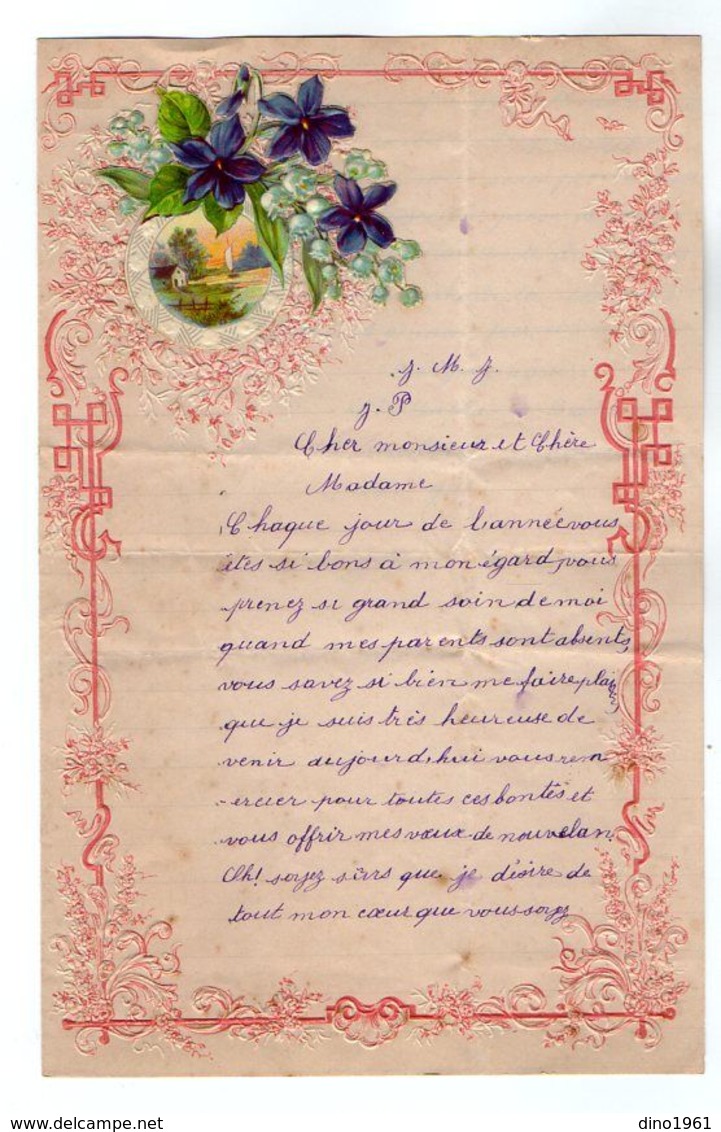 J. M. J.
J. P
Cher monsieur et Chère
Madame
Chaque jour de l'année vous
êtes si bons à mon égard, vous
prenez si grand soin de moi
quand mes parents sont absents,
vous savez si bien me faire plaisir
que je suis très heureuse de
venir aujourd'hui vous rem
-ercier pour toutes ces bontés et
vous offrir mes vœux de nouvel an.
Oh! soyez sûrs que je désire de
tout mon cœur que vous soyez
delcampe.net
dino1961